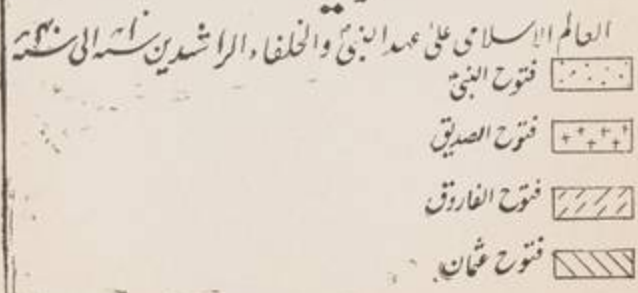 العالم الاسلامی علیٰ عہد النبیؐ والخلفاء الراشدین ۱ الی ۴۰
فتوح النبیؐ
فتوح الصدیق
فتوح الفاروق
فتوح عثمان